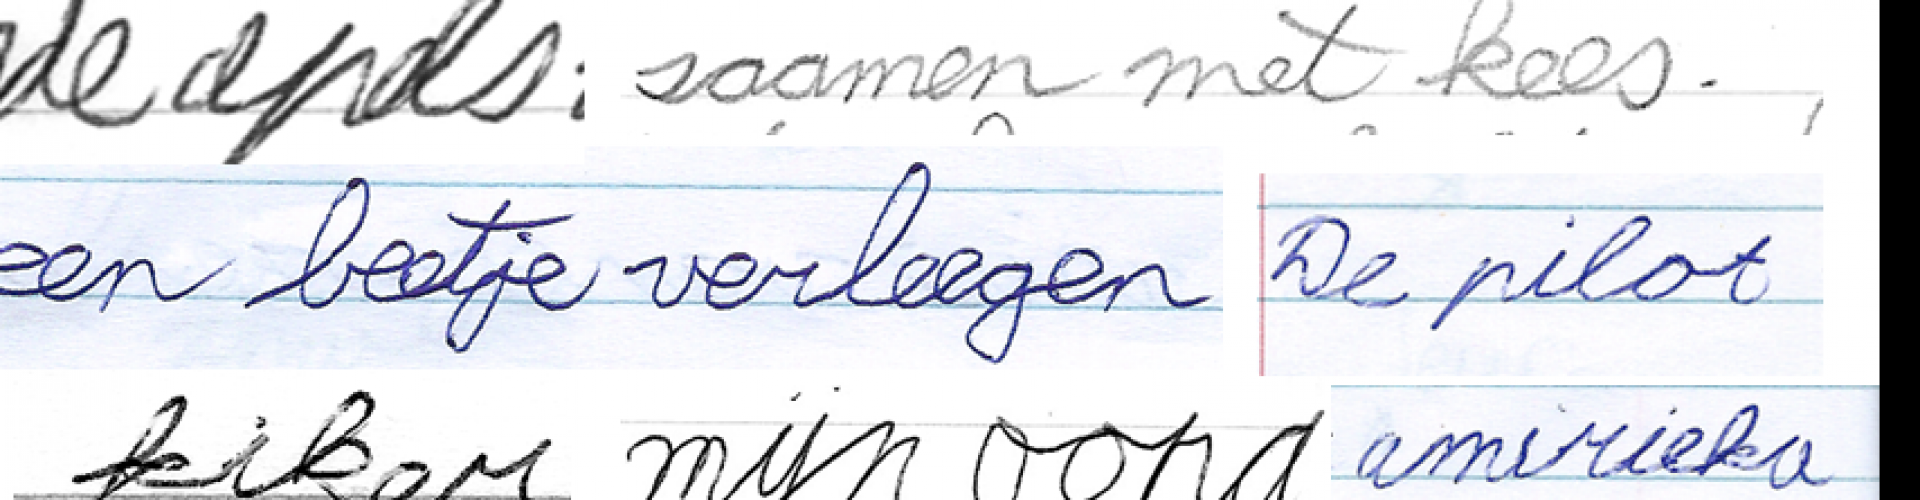 de apels. saamen met kees.
een beetje verleegen De piloot
kiker mijn oond amirieka